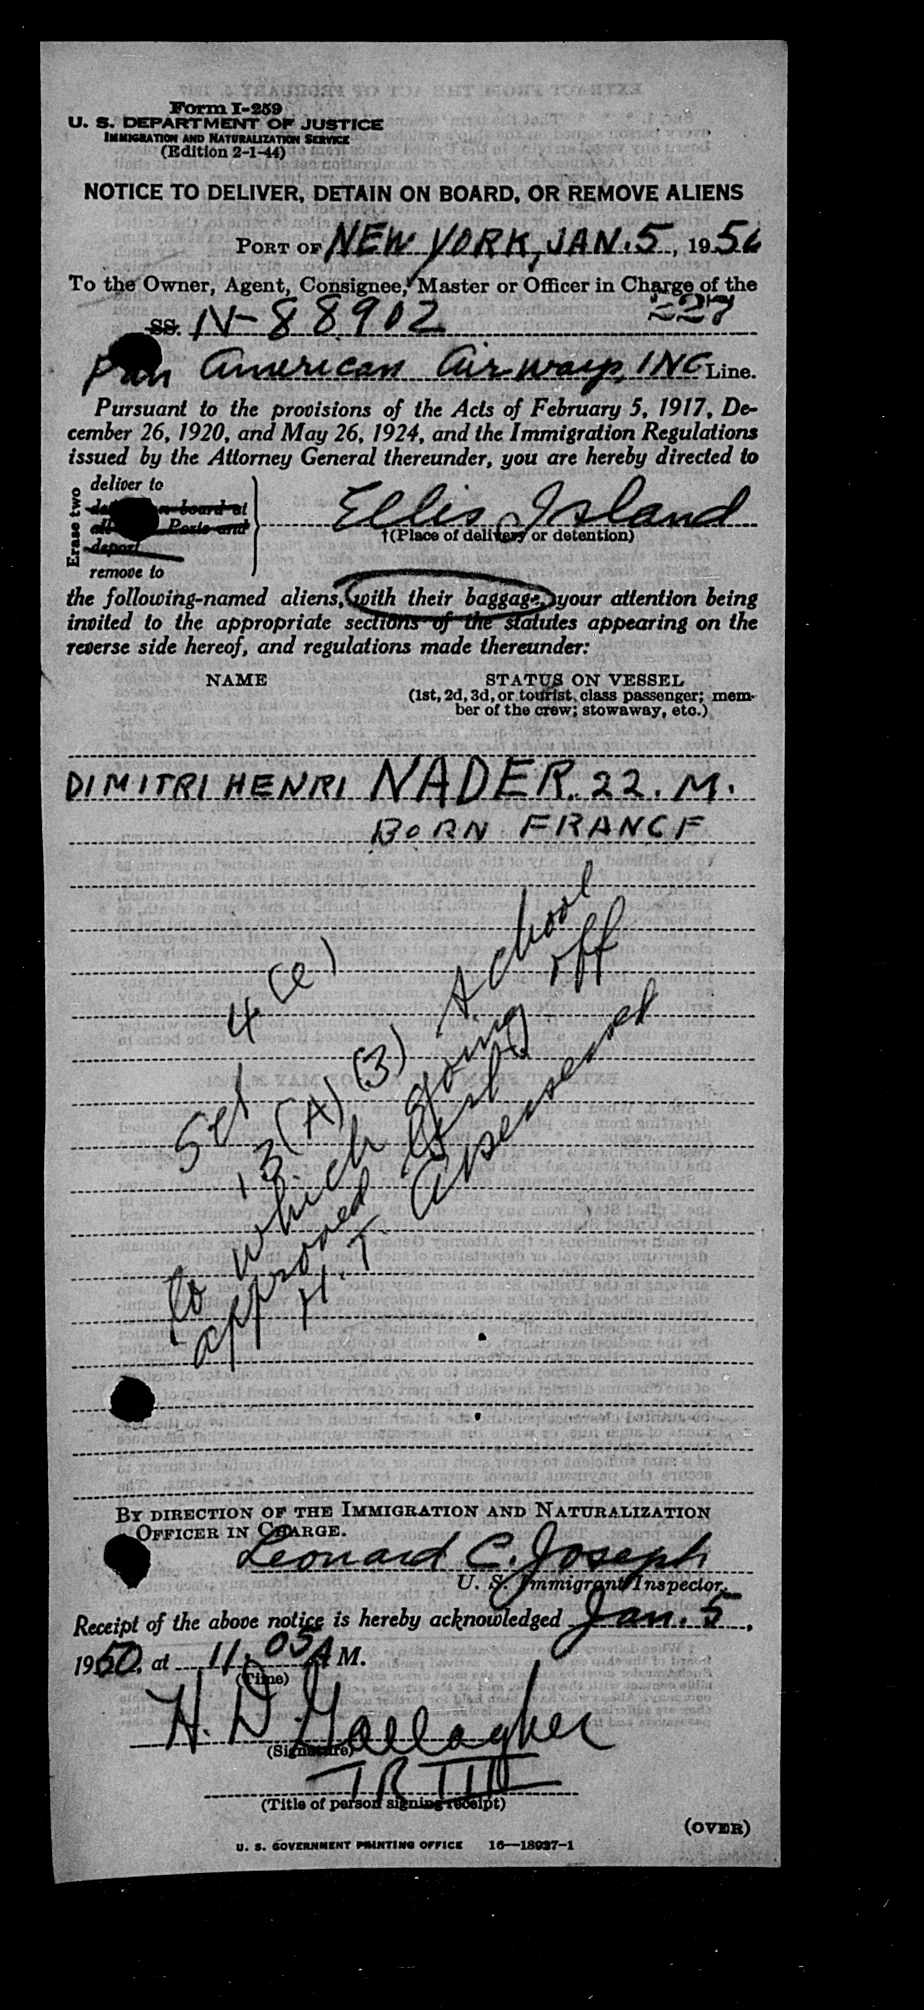 Form I-259
U. S. DEPARTMENT OF JUSTICE
IMMIGRATION AND NATURALIZATION SERVICE
(Edition 2-1-44)
NOTICE TO DELIVER, DETAIN ON BOARD, OR REMOVE ALIENS
PORT OF NEW YORK, JAN. 5, 1950
To the Owner, Agent, Consignee, Master or Officer in Charge of the
SS. N-88902 227
Pan American Airways, INC Line.
Pursuant to the provisions of the Acts of February 5, 1917, De-
cember 26, 1920, and May 26, 1924, and the Immigration Regulations
issued by the Attorney General thereunder, you are hereby directed to
Erase two
deliver to
on board at
all Ports and
deport
remove to
Ellis Island
†(Place of delivery or detention)
the following-named aliens, with their baggage, your attention being
invited to the appropriate sections of the statutes appearing on the
reverse side hereof, and regulations made thereunder:
NAME
STATUS ON VESSEL
(1st, 2d, 3d, or tourist class passenger; mem-
ber of the crew; stowaway, etc.)
DIMITRI HENRI NADER. 22. M.
BORN FRANCE
4(e)
13(A)(3) school
to which going off
approved list
H.T.
BY DIRECTION OF THE IMMIGRATION AND NATURALIZATION
OFFICER IN CHARGE.
Leonard C. Joseph
U. S. Immigrant Inspector.
Receipt of the above notice is hereby acknowledged Jan. 5,
1950, at 11.05 A M.
(Time)
H. D. Gallagher
(Signature)
TR III
(Title of person signing receipt)
(OVER)
U. S. GOVERNMENT PRINTING OFFICE 16—18937-1